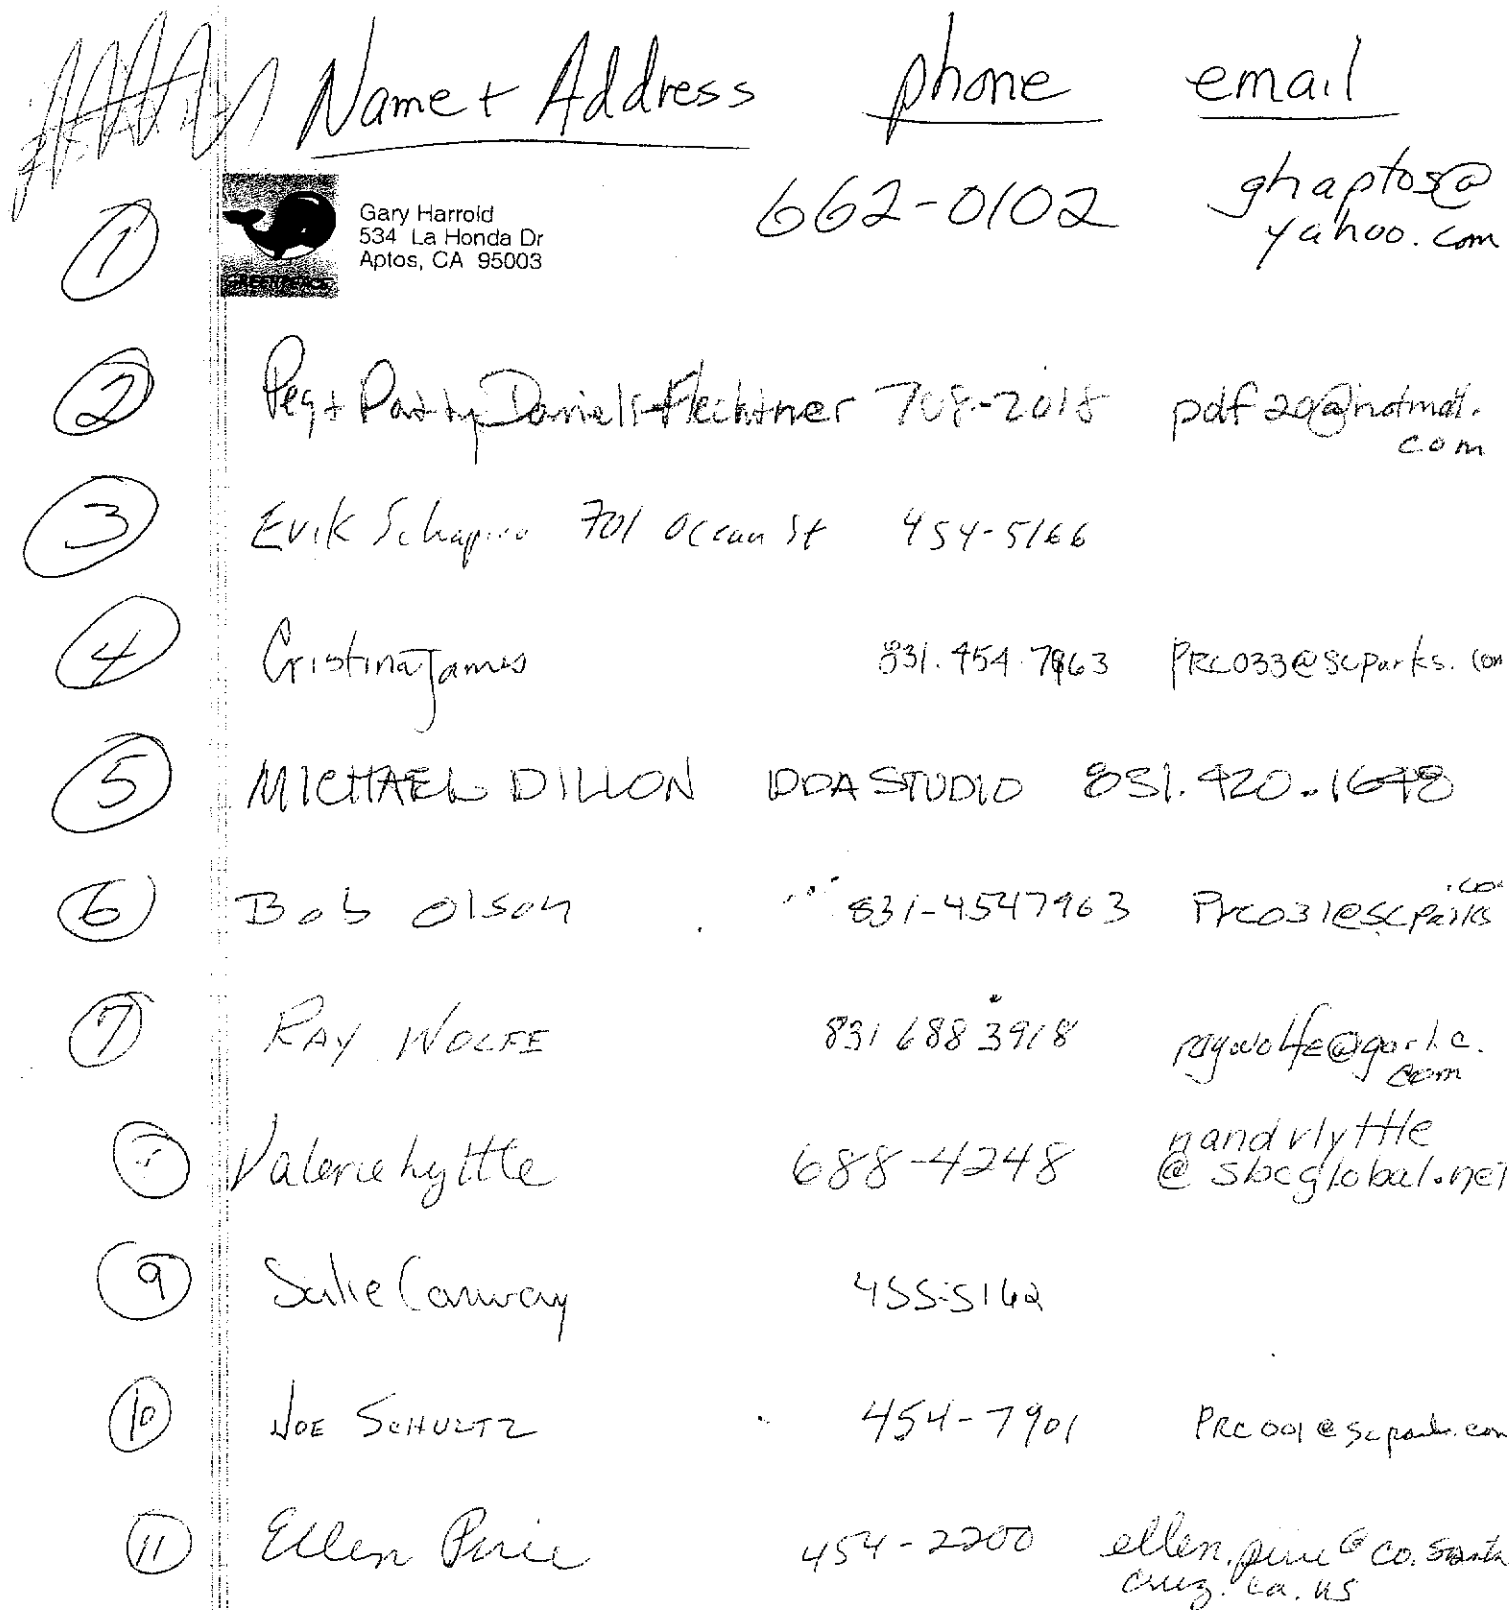 Name + Address phone email
1 Gary Harrold 662-0102 ghaptos@
534 La Honda Dr yahoo.com
Aptos, CA 95003
GREENPEACE
2 Peg + Patty Daniels-Flechtner 708-2018 pdf20@hotmail.
com
3 Erik Schapiro 701 Ocean St 454-5166
4 Cristina James 831.454.7963 PRC033@scparks.com
5 MICHAEL DILLON DDA STUDIO 831.420.1648
6 Bob Olson 831-4547963 Prc031@scparks
.co
7 RAY WOLFE 831 688 3918 raywolfe@garlic.
com
Valerie Lyttle 688-4248 nandvlyttle
@sbcglobal.net
9 Conway 455-5162
10 JOE SCHULTZ 454-7901 PRC001@scparks.com
11 Ellen Pirie 454-2200 ellen.pirie@co.santa
cruz.ca.us